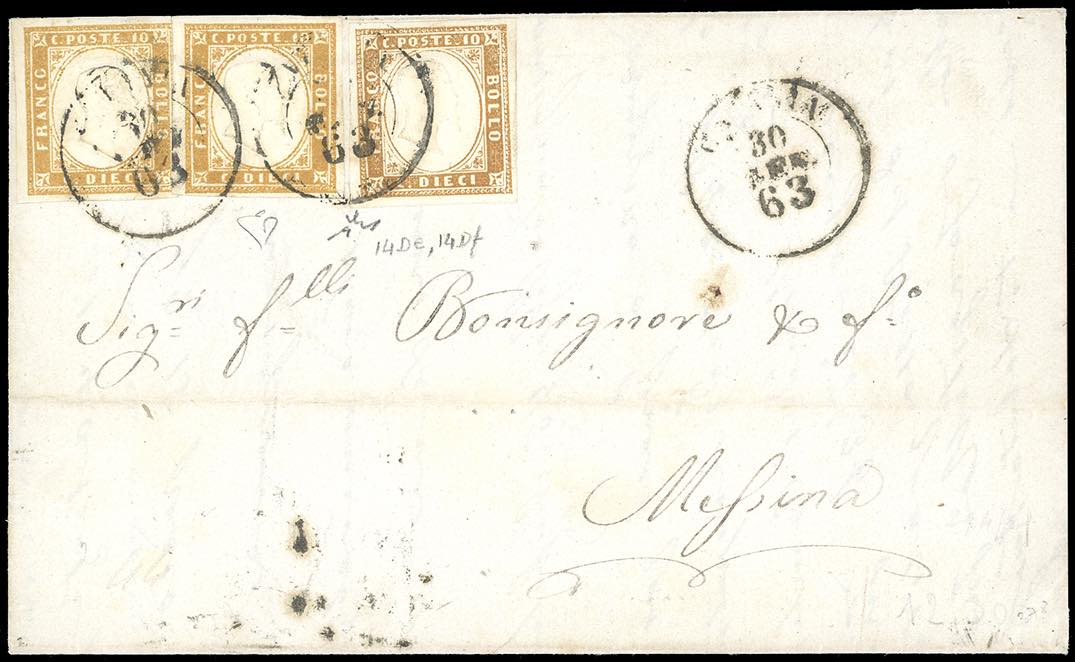 C. POSTE. 10 C. POSTE. 10 C. POSTE 10
FRANCO BOLLO FRANCO BOLLO BOLLO
DIECI DIECI DIECI
63
63
30
63
14De, 14Df
Sig.ri f.lli Bonsignore & f.o
Messina